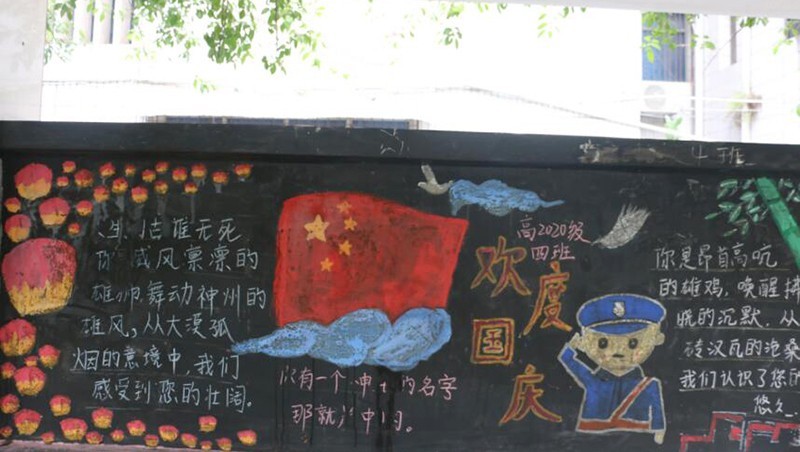 人生自古谁无死
你威风凛凛的
雄狮,舞动神州的
雄风。从大漠孤
烟的意境中,我们
感受到您的壮阔。
只有一个神圣的名字
那就是中国。
高2020级
四班
欢度
国庆
你是昂首高吭
的雄鸡,唤醒拂
晓的沉默,从
砖汉瓦的沧桑
我们认识了您的
悠久